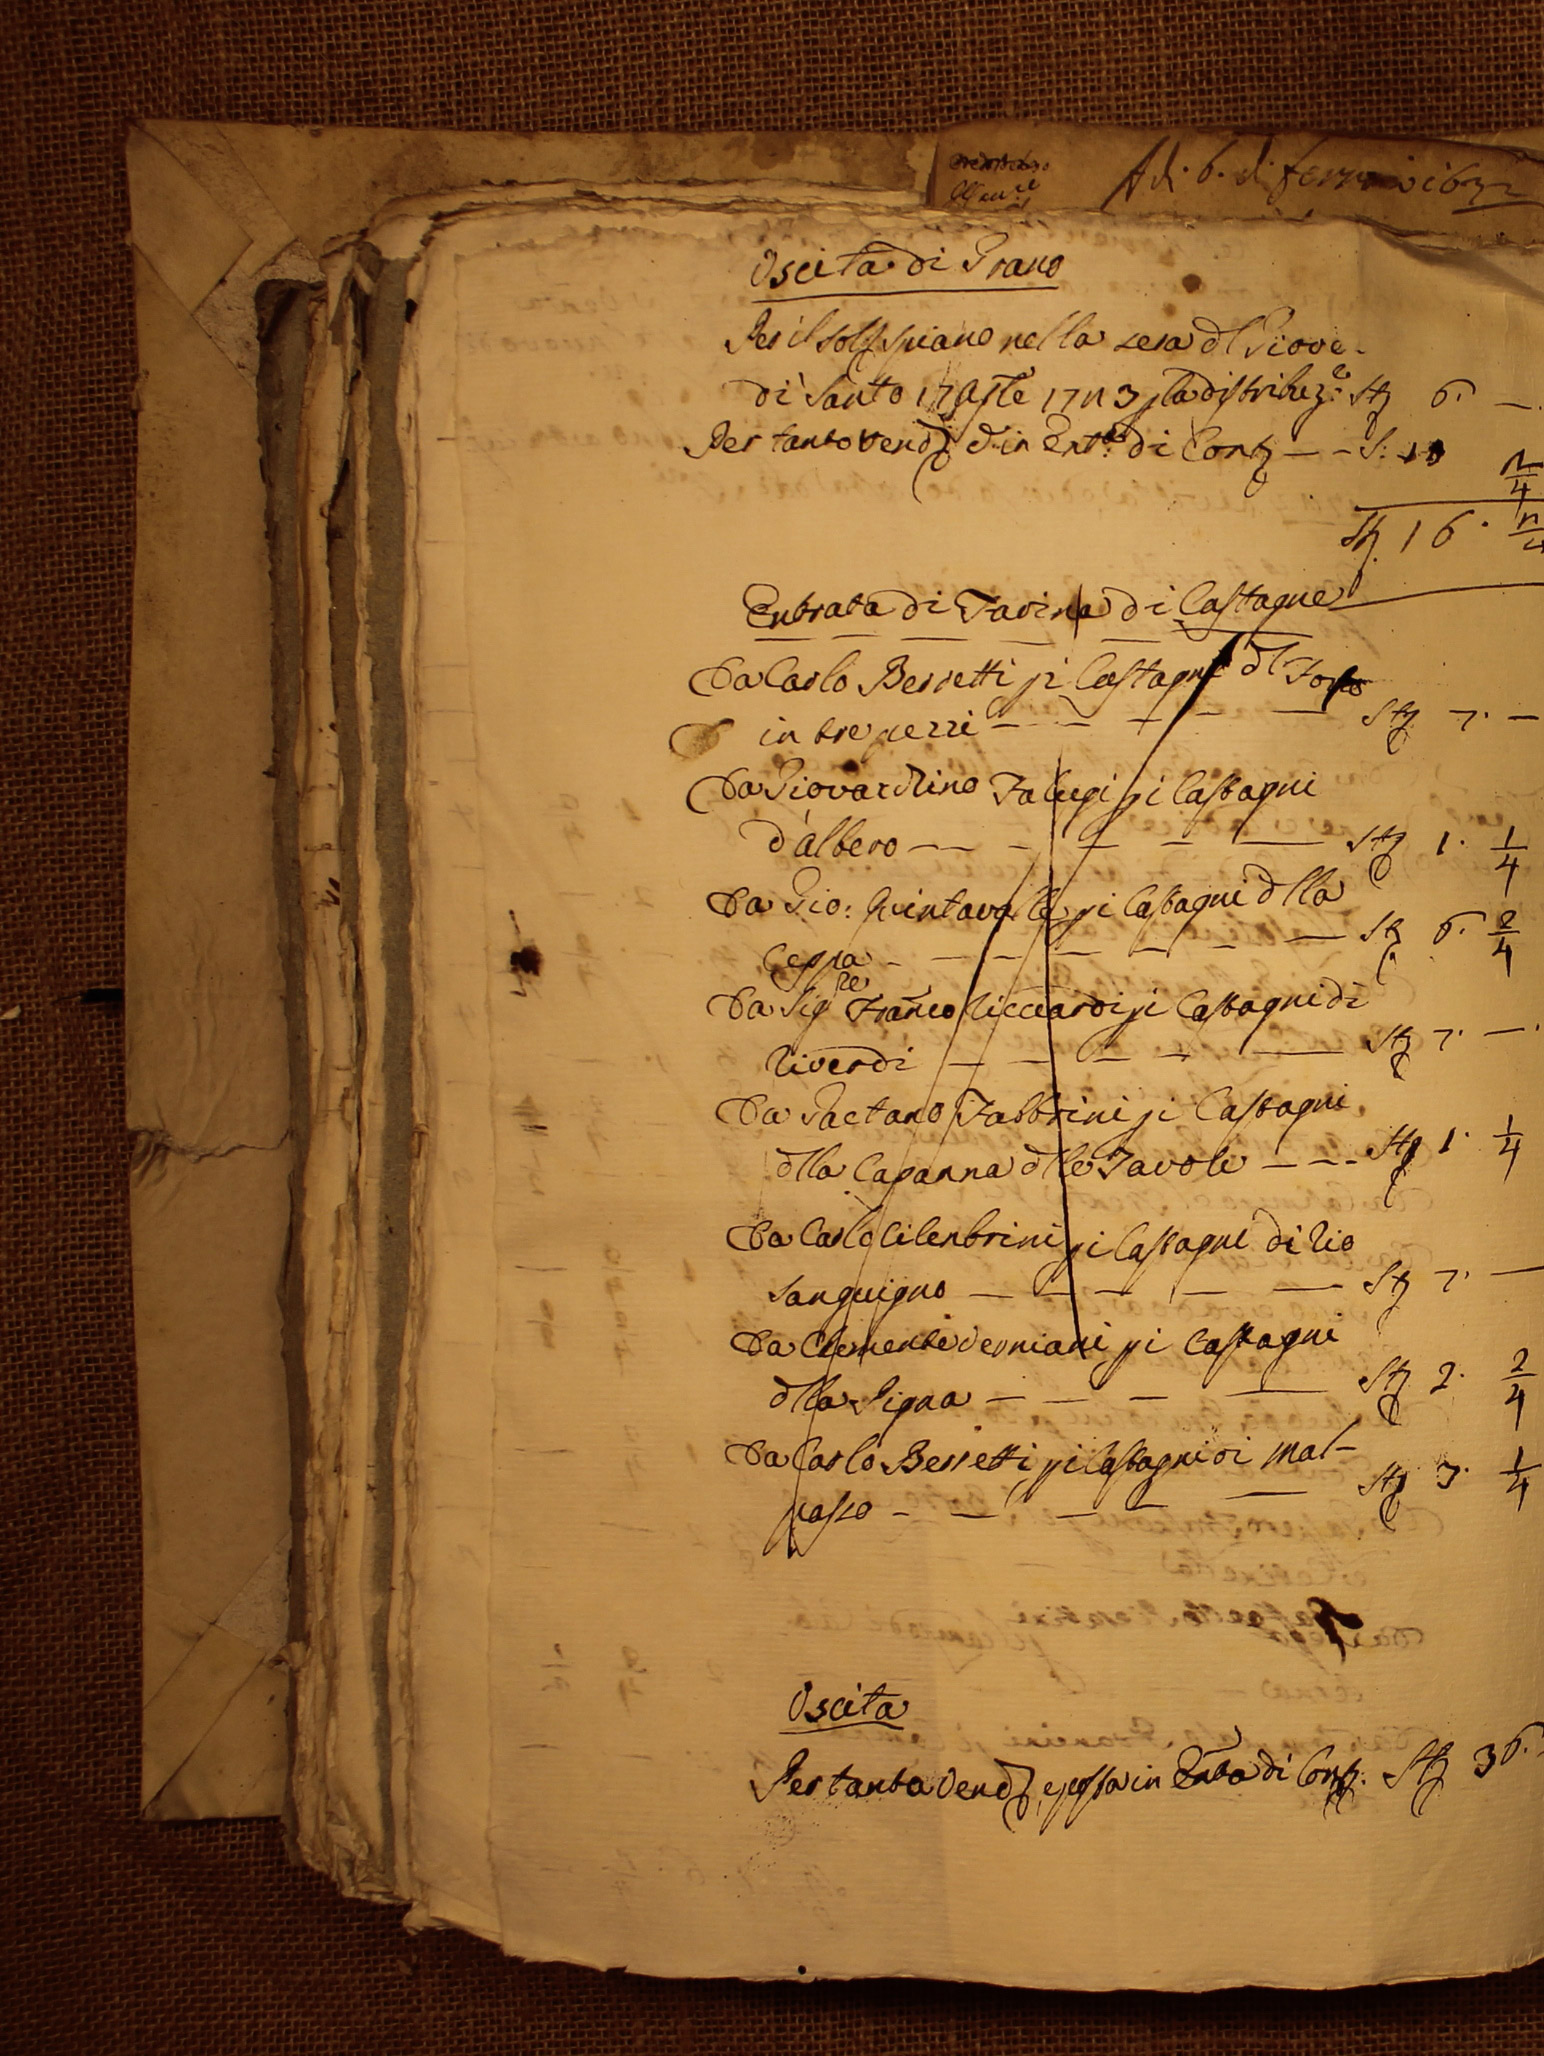 Adi. 6. di
Oscita di Grano
Per il solt spiano nella sera dl Giove-
di Santo 17 Aple 17n3 p la distribuz.e Sta 6. —
Per tanto vend e in Ent.a di Cont — — S: 10 n/4
Sta 16. n/4
Entrata di Farina di Castagne
Da Carlo Berretti pi Castagni dl
in tre pezzi — — — — — Sta 7. —
Da Giovacchino Falugi pi Castagni
d'albero — — — — — — Sta 1. 1/4
Da Gio: Quintavalle pi Castagni dlla
Ceppa — — — — — — Sta 6. 2/4
Da Sig.re Franco Ricciardi pi Castagni di
Riverdi — — — — — Sta 7. —
Da Gaetano Fabbrini pi Castagni
dlla Capanna dlle Tavole — — — Sta 1. 1/4
Da Carlo Cilenbrini pi Castagni di Rio
Sanguigno — — — — — Sta 7. —
Da Clemente pi Castagni
dlla Pigna — — — — Sta 2. 2/4
Da Carlo Berretti pi Castagni di Mal-
passo — — — — — Sta 3. 1/4
Oscita
Per tanta vend, e posta in Enta di Cont. Sta 36.